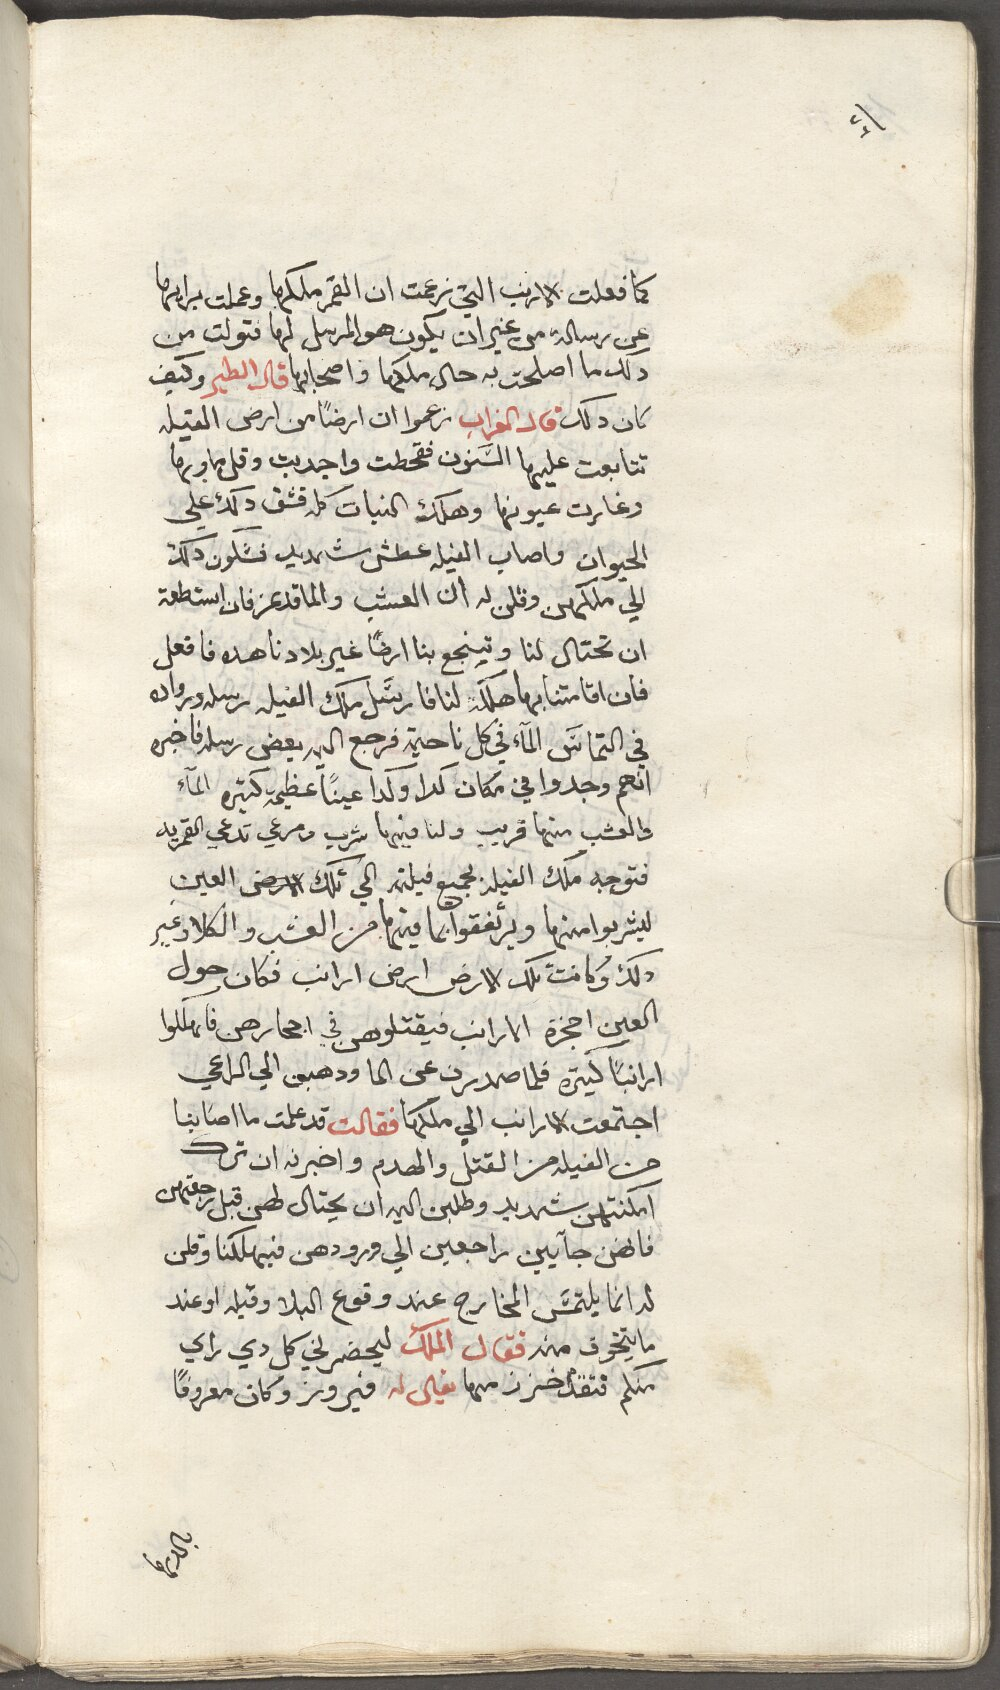 كما فعلت الارنب التي زعمت ان القمر ملكها وعملت برايها
عن رسالة من غير ان يكون هو المرسل لها فتولت من
دلك ما اصلحت به حال ملكها واصحابها قال الطير وكيف
كان دلك قال الغراب زعموا ان ارضًا من ارض الفيله
تتابعت عليها السنون فقحطت واجدبت وقل ماوها
وغارت عيونها وهلك النبات كله فشق دلك علي
الحيوان واصاب الفيله عطش شديد فشكون دلك
الي ملكهن وقلن له ان العشب والما قد عز فان استطعة
ان تحتال لنا وتينجع بنا ارضًا غير بلادنا هده فافعل
فان اقامتنا بها هلكة لنا فارسَل ملك الفيله رسله ورواده
في التماسَ المآء في كل ناحية فرجع اليه بعض رسله فاخبره
انهم وجدوا في مكان كدا وكدا عينًا عظيمة كتيره المآء
والعشب منها قريب ولنا فيها شرب ومرعي تدعي القمريه
فتوجه ملك الفيله بجميع فيلته الي تلك الارض العين
ليشربوا منها ويرتفقوا بما فيها من العشب والكلا وغير
دلك وكانت تلك الارض ارض ارانب فكان حول
العين احجزة الارانب فيقتلوهن في اجحارهن فاهلكوا
ارانبًا كتيرة فلما صدرن عن الما ودهبن الي المراعي
اجتمعت الارانب الي ملكها فقالت قد علمت ما اصابنا
من الفيله من القتل والهدم واخبرنه ان ترك
امكنتهن شديد وطلبن اليه ان يحتال لهن قبل رجعتهن
فانهن جآيين راجعين الي ورودهن فيهلكنا وقلن
له انما يلتمسَ المخارج عند وقوع البلا وقبله اوعند
ما يتخوف منه فقال الملك ليحضر لي كل دي راي
منكم فتقدم خزز منها يقال له فيروز وكان معروفًا